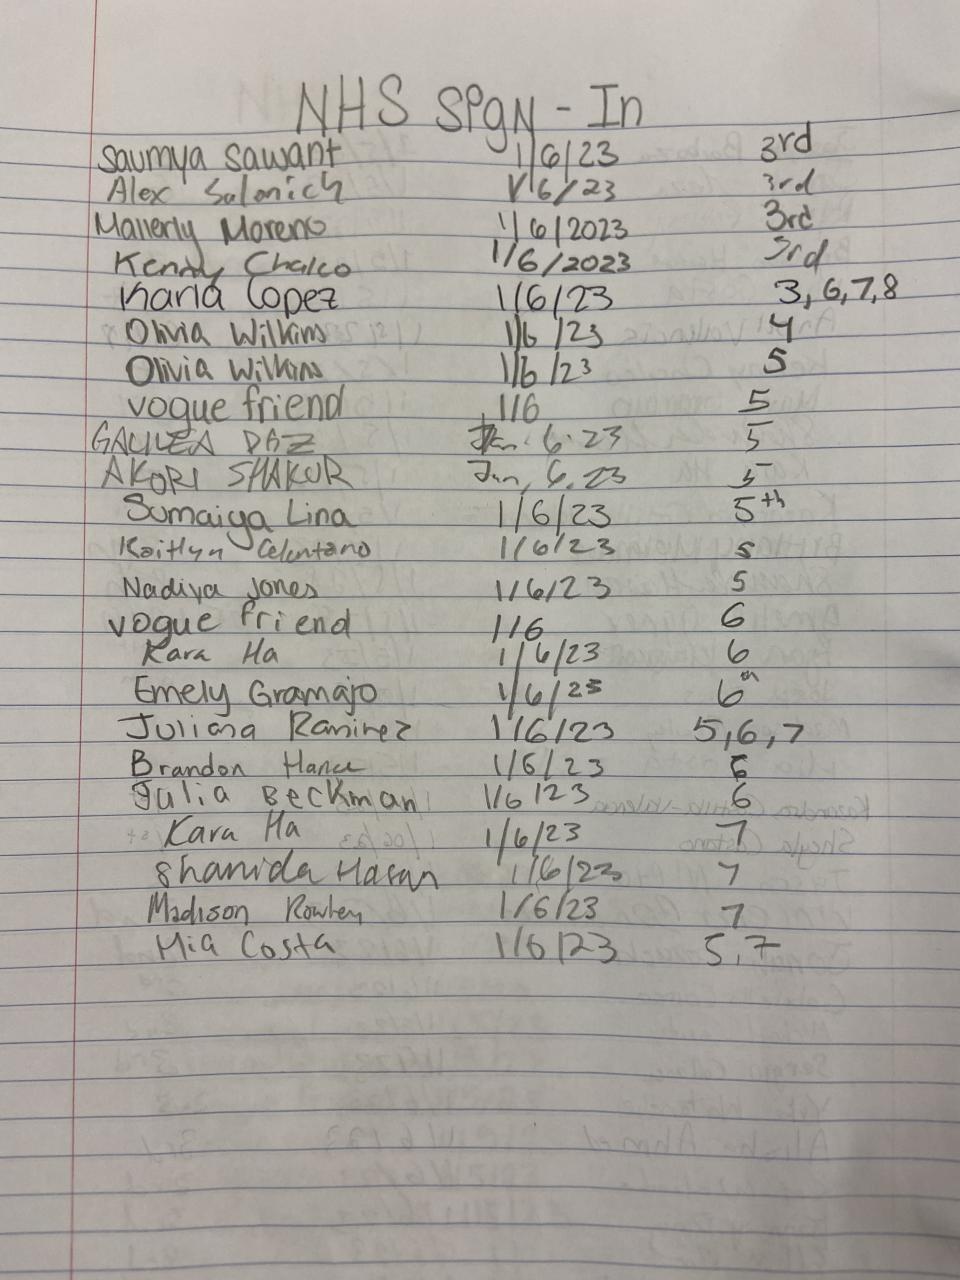 NHS SIgN - In
Saumya Sawant 1/6/23 3rd
Alex Salonich 1/6/23 3rd
Mallerly Moreno 1/6/2023 3rd
Kenny Chalco 1/6/2023 3rd
Karla Lopez 1/6/23 3, 6, 7, 8
Olivia Wilkins 1/6/23 4
Olivia Wilkins 1/6/23 5
vogue friend 1/6 5
GALILEA DAZ Jan. 6. 23 5
AKORI SHAKUR Jan, 6, 23 5
Sumaiya Lina 1/6/23 5th
Kaitlyn Celentano 1/6/23 5
Nadiya Jones 1/6/23 5
vogue friend 1/6 6
Kara Ha 1/6/23 6
Emely Gramajo 1/6/23 6th
Juliana Ramirez 1/6/23 5, 6, 7
Brandon 1/6/23 6
Julia Beckman 1/6/23 6
Kara Ha 1/6/23 7
Shanida Hasan 1/6/23 7
Madison 1/6/23 7
Mia Costa 1/6/23 5, 7